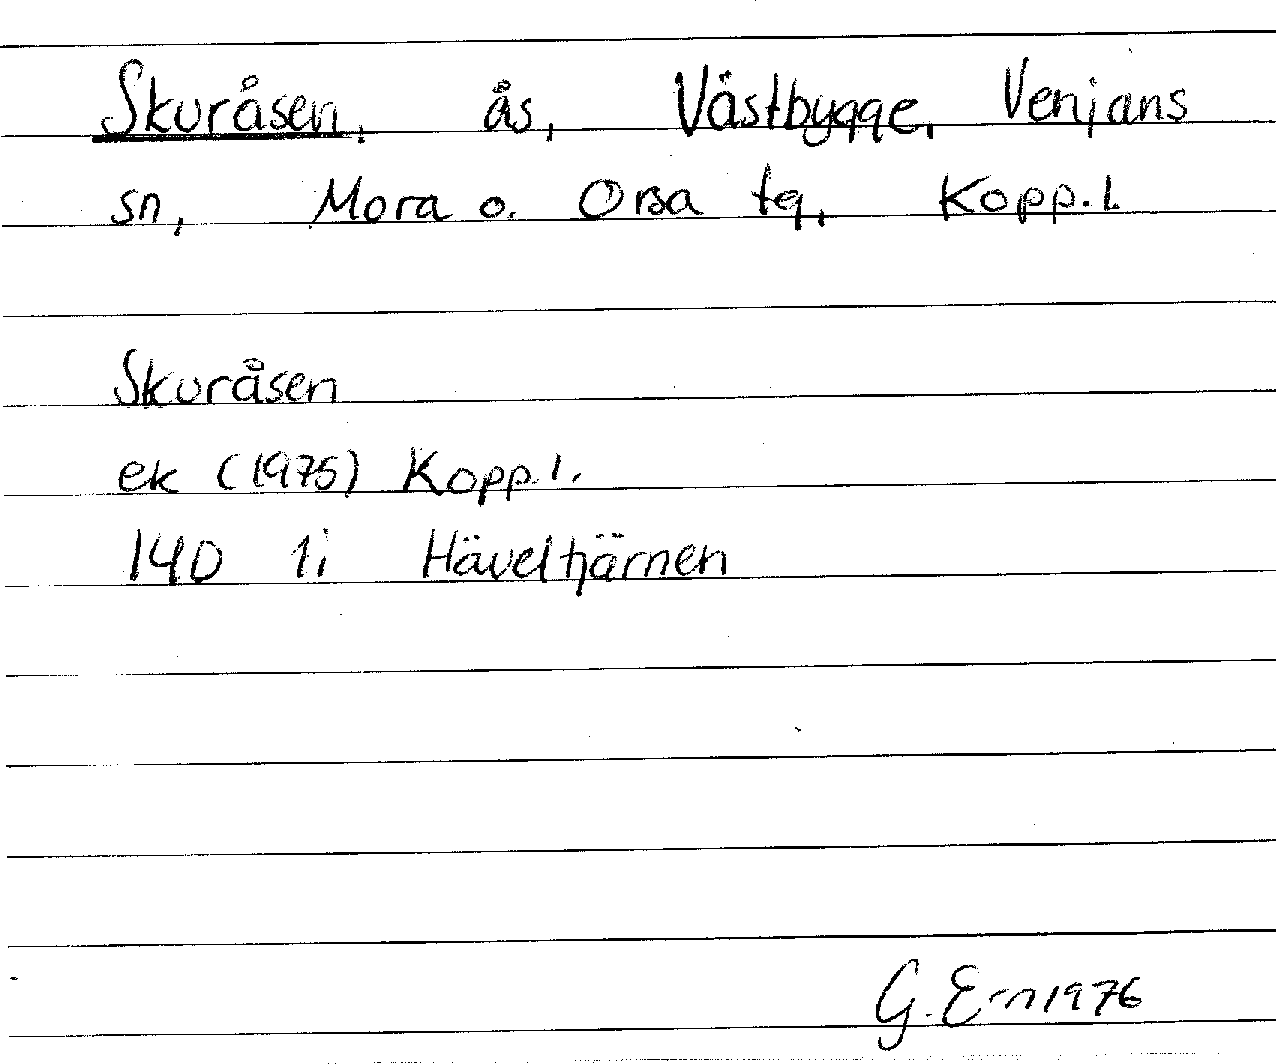 Skuråsen, ås, Västbygge, Venjans
sn, Mora o. Orsa tg, Kopp.l.
Skuråsen
ek (1975) Kopp.l.
14D 1i Häveltjärnen
G. Ern 1976